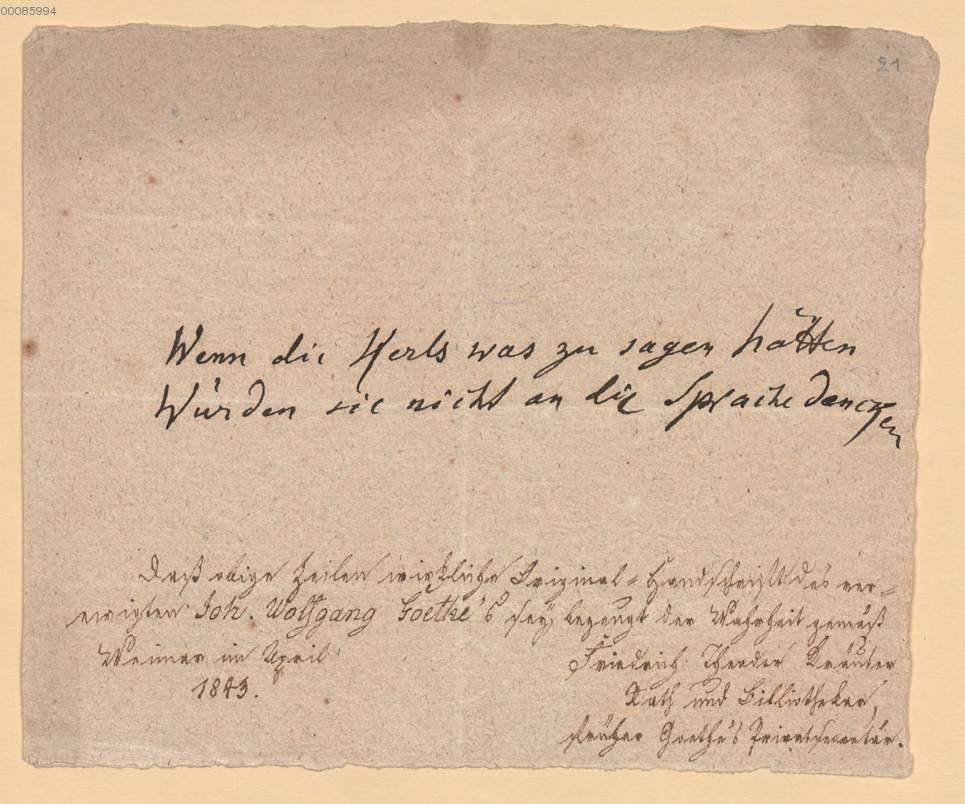 00085994
21
Wenn die Kerls was zu sagen hätten
Würden sie nicht an die Sprache dencken
Daß obige Zeilen wirkliche Original-Handschrift des ver-
ewigten Joh. Wolfgang Goethe's sey, bezeugt der Wahrheit gemäß
Weimar im April
1843.
Friedrich Theodor Kräuter
Rath und Bibliothekar,
früher Goethe's Privatsecretär.